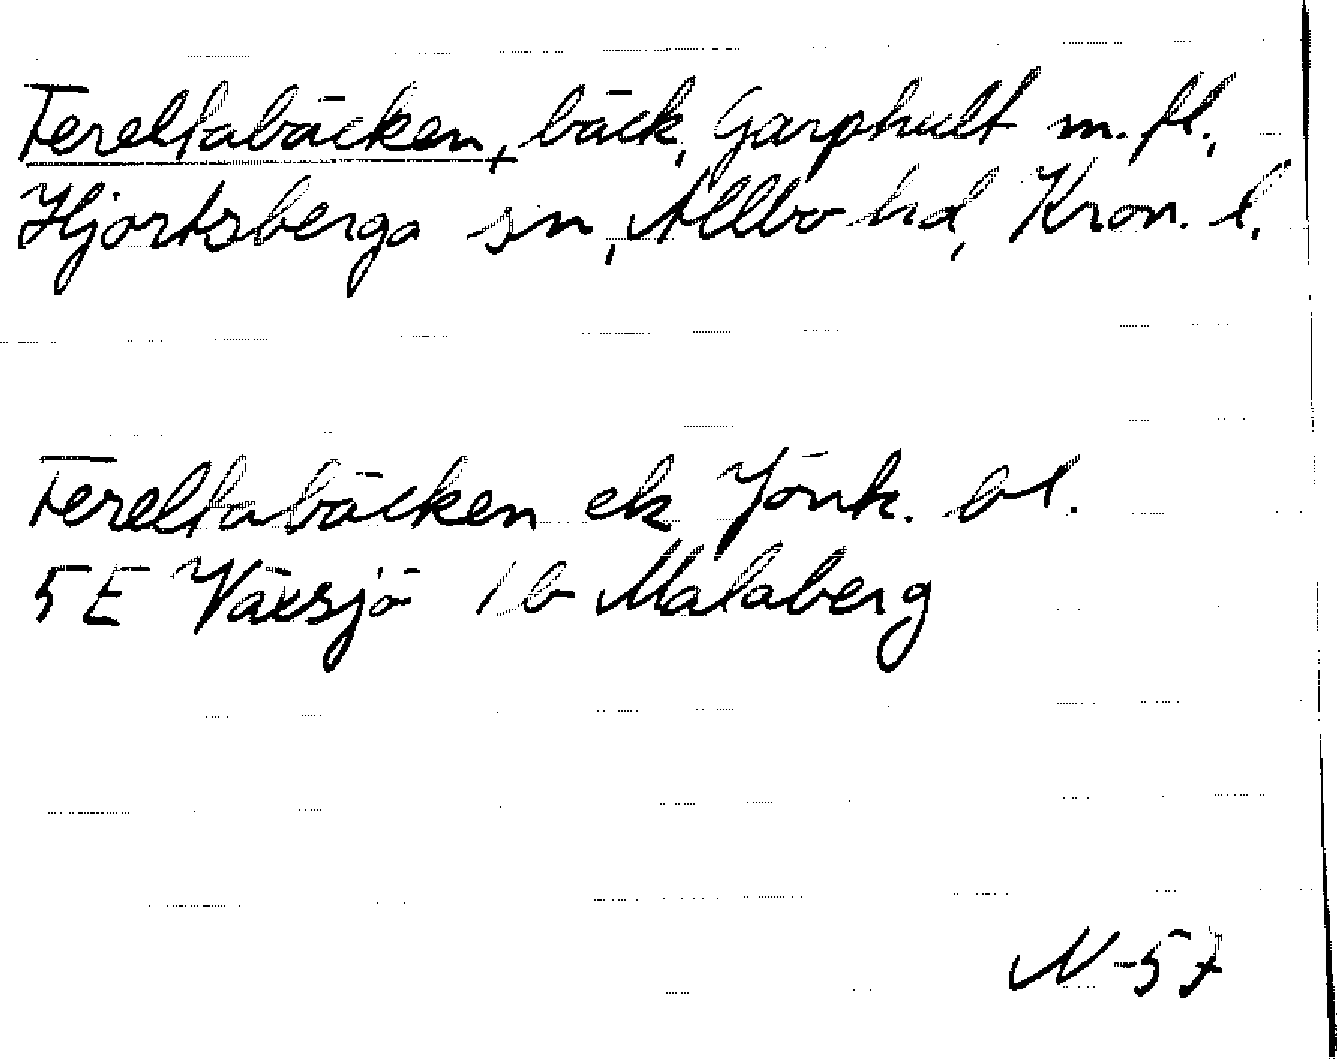 Ferellabäcken, bäck, Garphult m. fl.,
Hjortsberga sn, Allbo hd, Kron. l.
Ferellabäcken ek Jönk. bl.
5E Växsjö 1b Malaberg
N-57